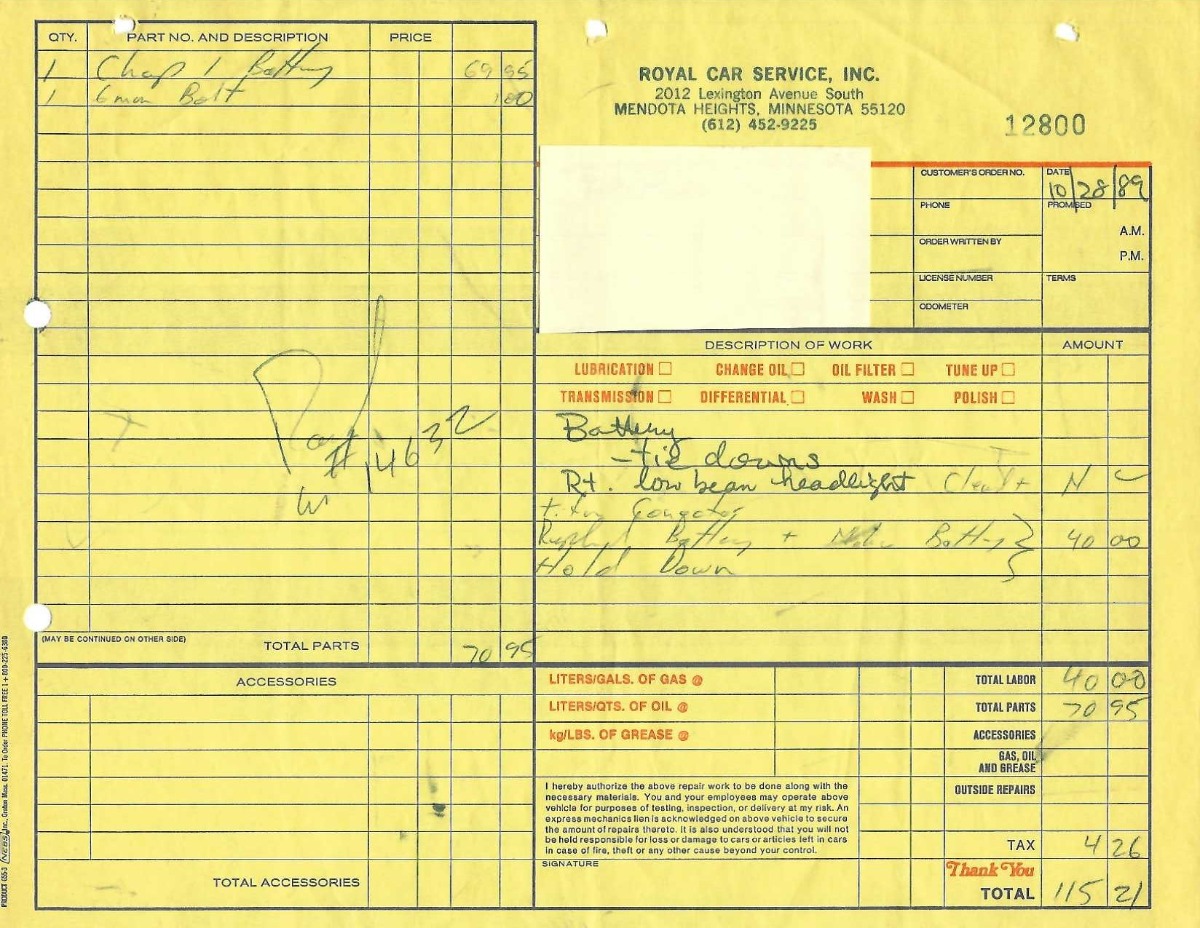 QTY. PART NO. AND DESCRIPTION PRICE
1 Battery 69 95
1 6mm Bolt 1 00
Paid
# 14632
(MAY BE CONTINUED ON OTHER SIDE) TOTAL PARTS 70 95
ACCESSORIES
TOTAL ACCESSORIES
ROYAL CAR SERVICE, INC.
2012 Lexington Avenue South
MENDOTA HEIGHTS, MINNESOTA 55120
(612) 452-9225
12800
CUSTOMER'S ORDER NO. DATE 10/28/89
PHONE PROMISED
A.M.
ORDER WRITTEN BY
P.M.
LICENSE NUMBER TERMS
ODOMETER
DESCRIPTION OF WORK AMOUNT
LUBRICATION CHANGE OIL OIL FILTER TUNE UP
TRANSMISSION DIFFERENTIAL WASH POLISH
Battery
- tie downs
Rt. low beam headlight N C
Battery + Battery 40 00
Hold Down
LITERS/GALS. OF GAS @ TOTAL LABOR 40 00
LITERS/QTS. OF OIL @ TOTAL PARTS 70 95
kg/LBS. OF GREASE @ ACCESSORIES
GAS, OIL
AND GREASE
OUTSIDE REPAIRS
I hereby authorize the above repair work to be done along with the
necessary materials. You and your employees may operate above
vehicle for purposes of testing, inspection, or delivery at my risk. An
express mechanics lien is acknowledged on above vehicle to secure
the amount of repairs thereto. It is also understood that you will not
be held responsible for loss or damage to cars or articles left in cars
in case of fire, theft or any other cause beyond your control.
TAX 4 26
SIGNATURE
Thank You
TOTAL 115 21
PRODUCT 655-3 NEBS Inc., Groton, Mass. 01471. To Order PHONE TOLL FREE 1 + 800-225-6380